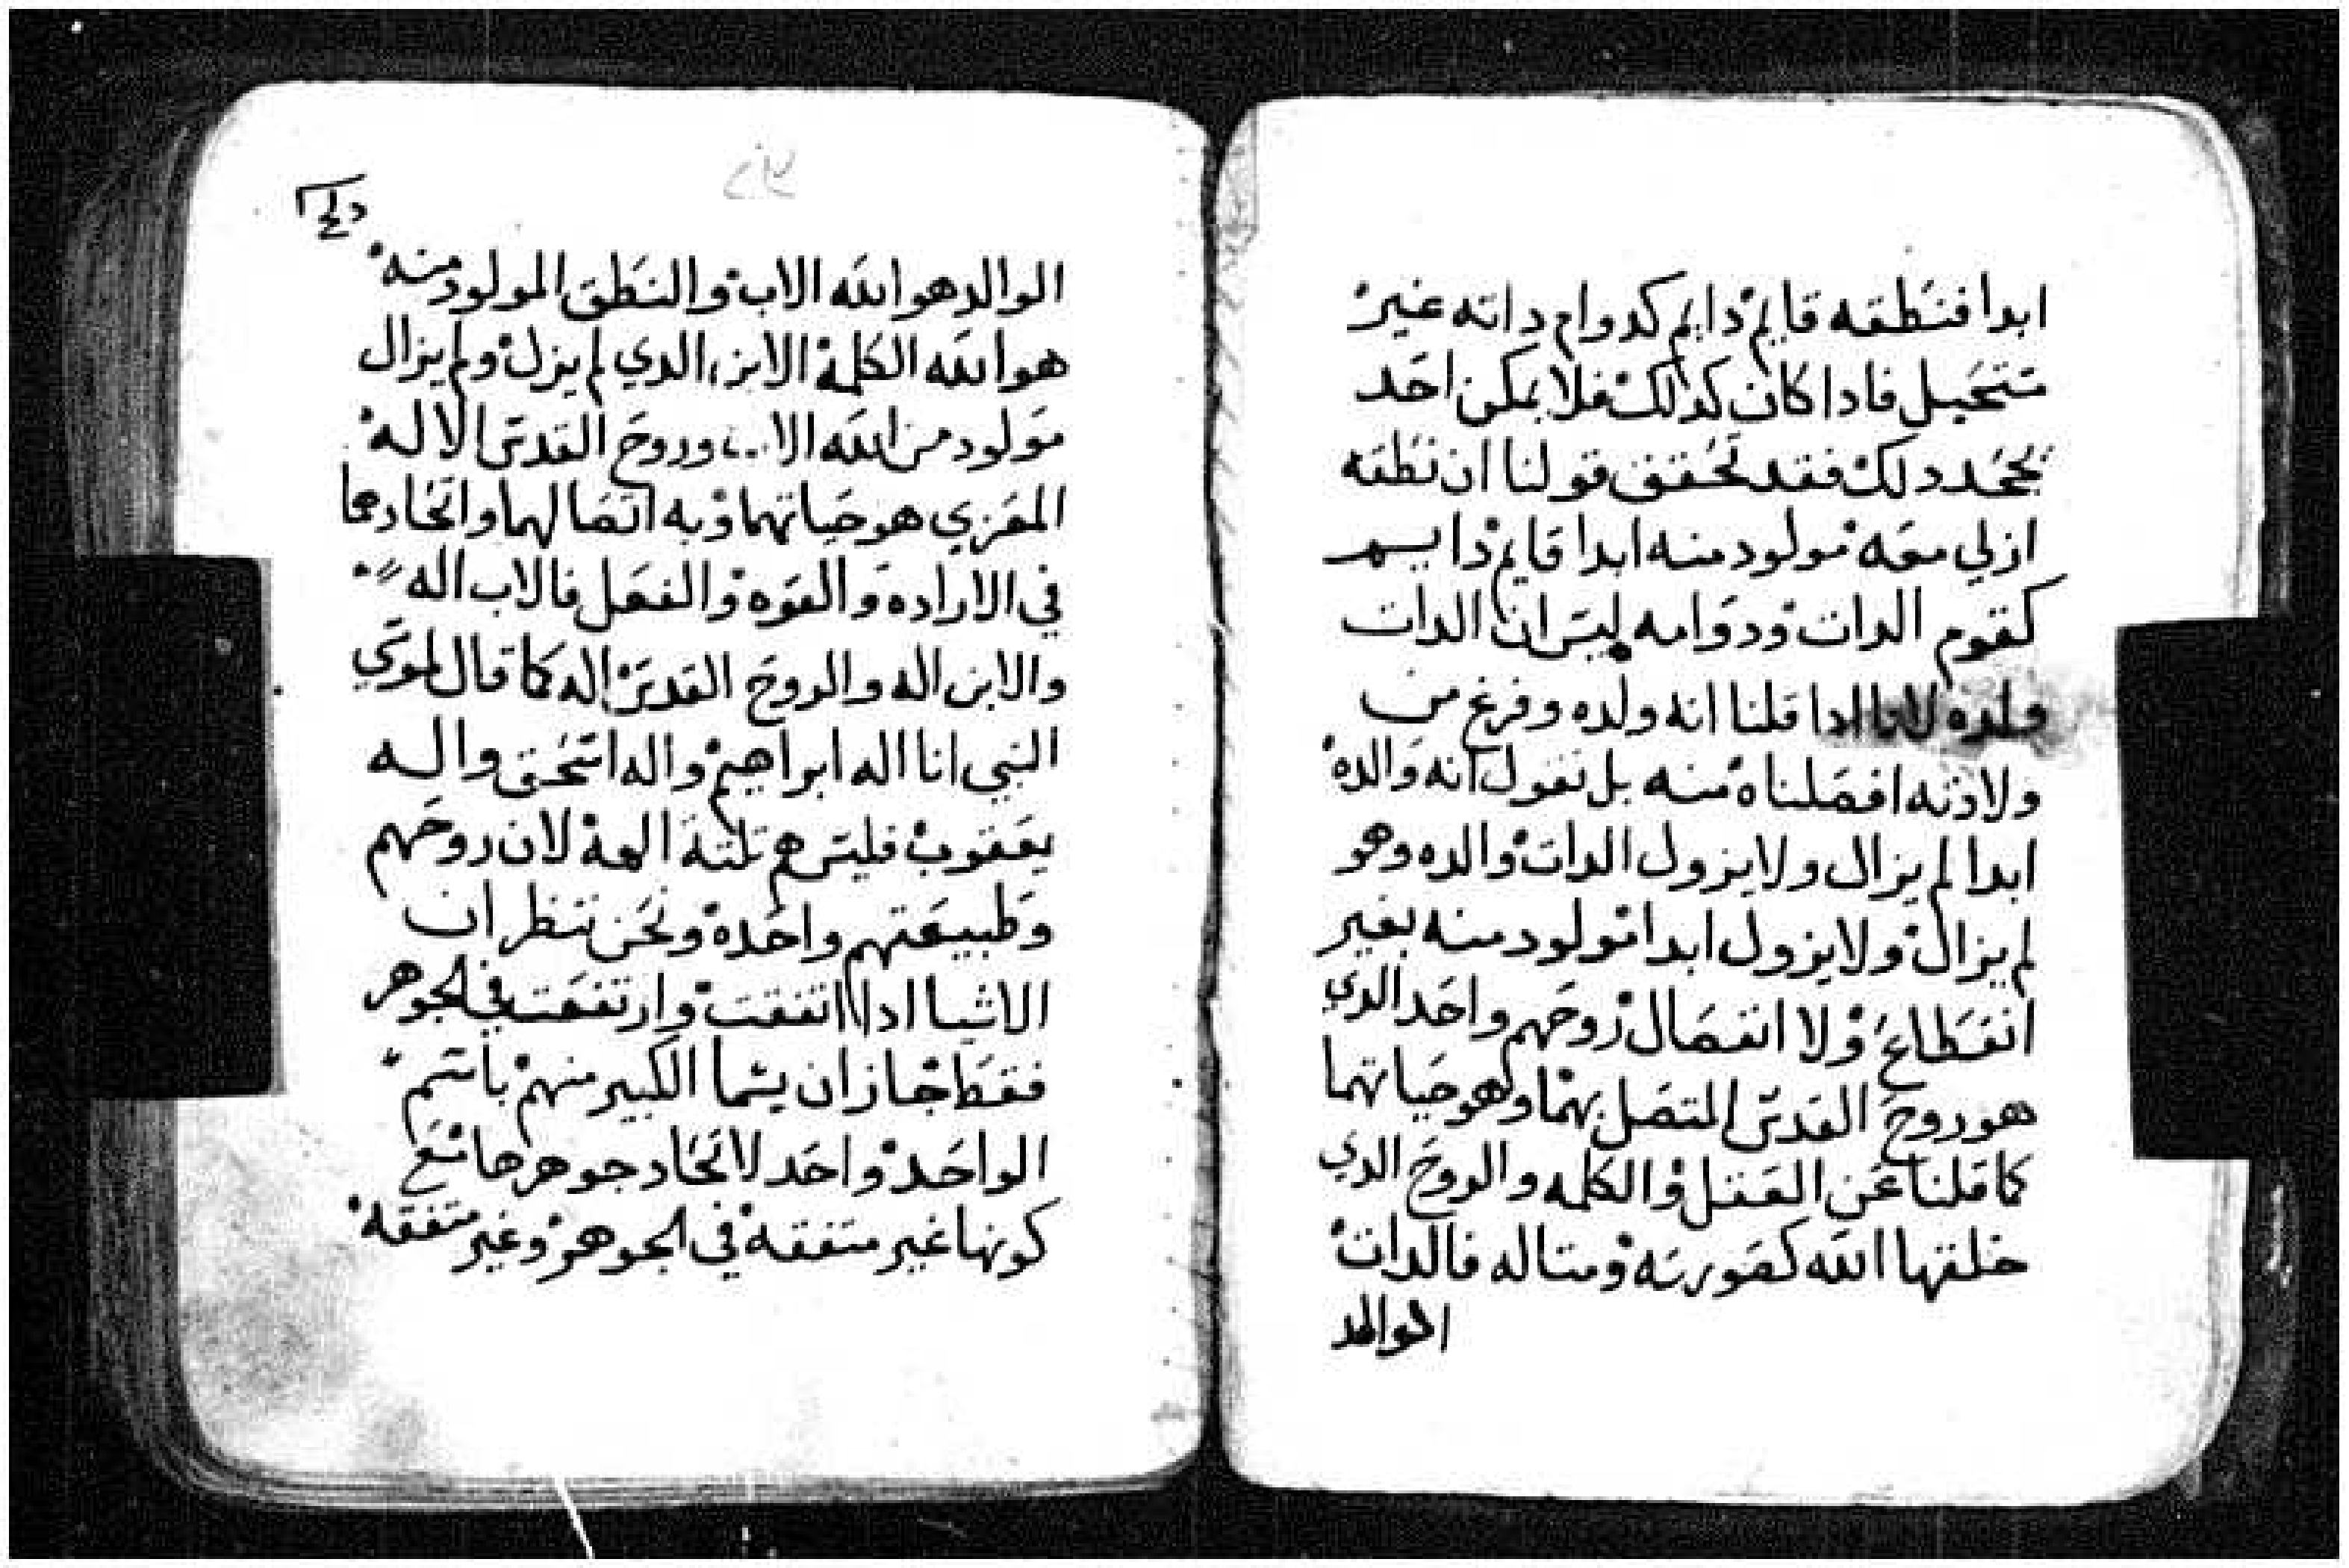 ابدا فنطقه قايم دايم كدوام داته غير
متحيل فادا كان كدلك فلا يمكن احد
يجحد دلك فقد تحقق قولنا ان نطقه
ازلي معه مولود منه ابدا قايم دايم
كقوم الدات ودوامه ليس ان الدات
ولده لاننا ادا قلنا انه ولده وفرغ من
ولادته افصلناه منه بل نقول انه والده
ابدا لم يزال ولا يزول الدات والده وهو
لم يزال ولا يزول ابدا مولود منه بغير
انقطاع ولا انفصال روحهم واحد الدي
هو روح القدس المتصل بهما وهو حياتهما
كما قلنا عن العقل والكلمه والروح الدي
خلقها الله كصورته ومتاله فالدات
الوالد
الوالد هو الله الاب والنطق المولود منه
هو الله الكلمة الابن الدي لم يزل ولم يزال
مولود من الله الاب وروح القدس الاله
المعزي هو حياتهما وبه اتصالهما واتحادهما
في الاراده والقوه والفعل فالاب اله
والابن اله والروح القدس اله كما قال لموسي
النبي انا اله ابراهيم واله اسحق واله
يعقوب فليس هم تلتة الهة لان روحهم
وطبيعتهم واحدة ونحن ننظر ان
الاشيا ادا اتفقت وارتفعت في الجوهر
فقط جاز ان يسما الكبير منهم باسم
الواحد واحد لاتحاد جوهرها مع
كونها غير متفقة في الجوهر وغير متفقة